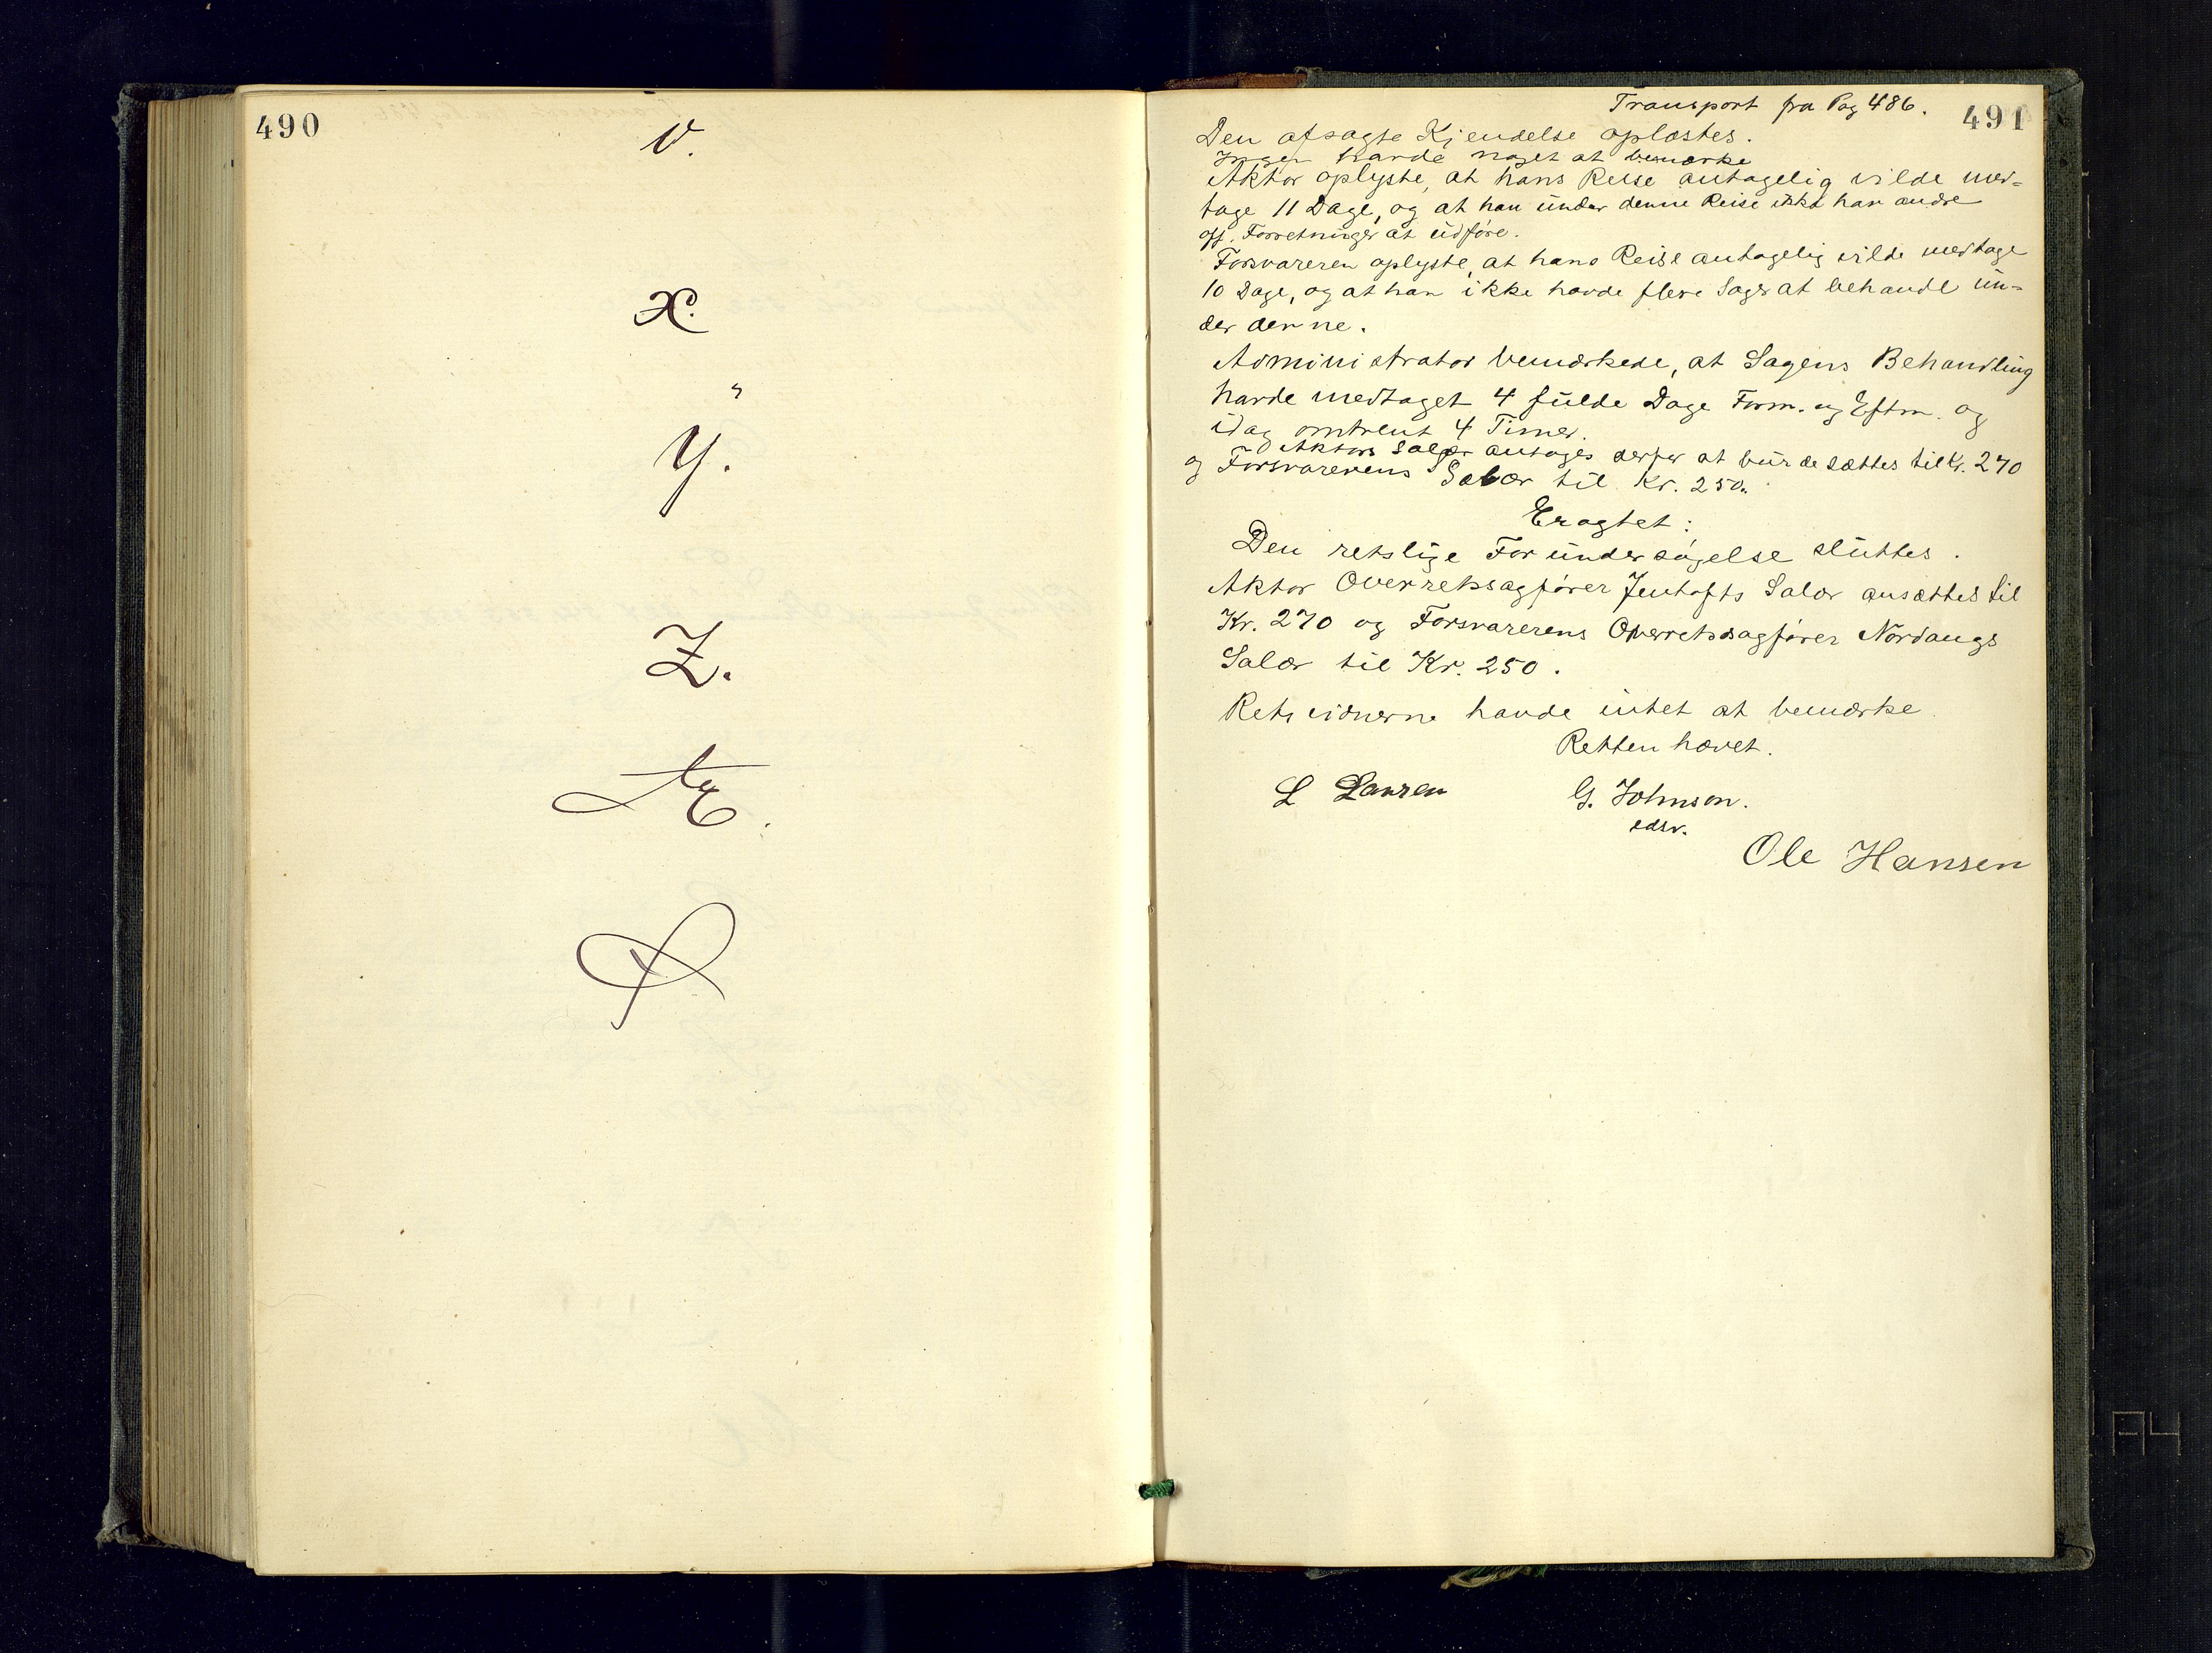 490
V.
X.
Y.
Z.
Æ.
Ø
Transport fra Pag 486.
491
Den afsagte Kjendelse oplæstes.
Ingen havde noget at bemærke
Aktor oplyste, at hans Reise antagelig vilde med=
tage 11 Dage, og at han under denne Reise ikke har andre
off. Forretninger at udføre.
Forsvareren oplyste, at hans Reise antagelig vilde medtage
10 Dage, og at han ikke havde flere Sager at behandl un=
der denne.
Administrator bemærkede, at Sagens Behandling
havde medtaget 4 fulde Dage Form. og Eftm. og
idag omtrent 4 Timer.
Aktors Salær antages derfor at burde sættes til Kr. 270
og Forsvarerens Salær til Kr. 250.
Eragtet:
Den retslige Forundersøgelse sluttes.
Aktor Overretssagfører Jentofts Salær ansættes til
Kr. 270 og Forsvarerens Overretssagfører Nordangs
Salær til Kr. 250.
Retsvidnerne havde intet at bemærke.
Retten hævet.
L Larsen
G. Johnson.
edsv.
Ole Hansen
A4